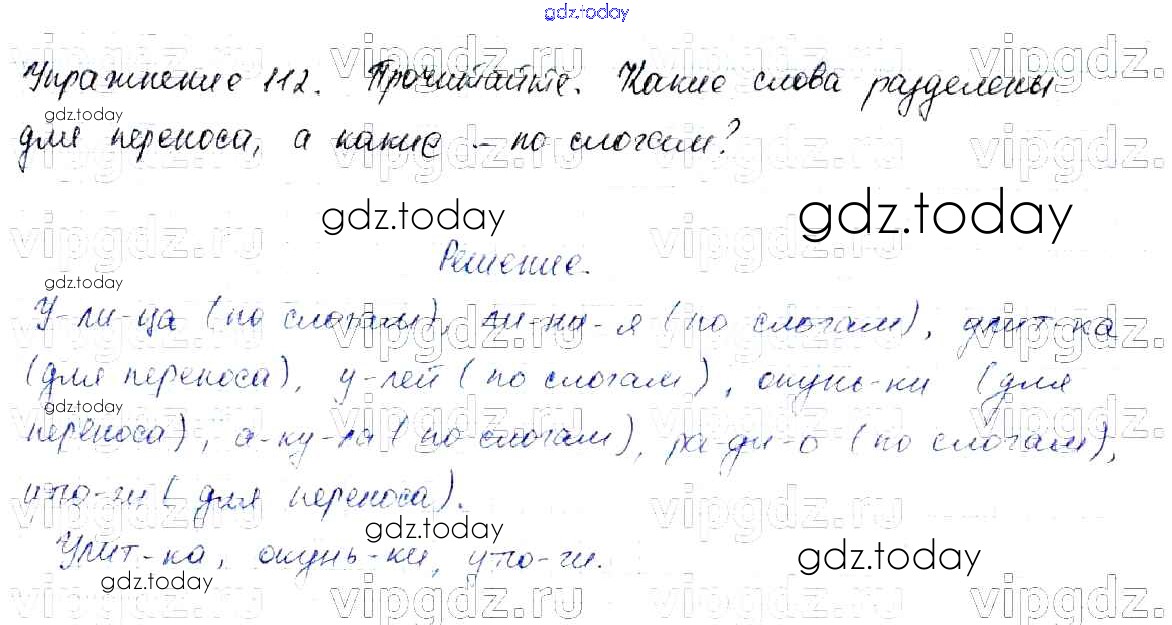 gdz.today
vipgdz.ru vipgdz.ru vipgdz.
Упражнение 112. Прочитайте. Какие слова разделены
gdz.today
для переноса, а какие – по слогам?
vipgdz.ru vipgdz.ru vipgdz.
gdz.today gdz.today
vipgdz.ru vipgdz.ru
Решение.
gdz.today
У-ли-ца (по слогам), ли-ни-я (по слогам), улит-ка
vipgdz.ru vipgdz.ru vipgdz.
(для переноса), у-лей (по слогам), окунь-ки (для
gdz.today
переноса), а-ку-ла (по слогам), ра-ди-о (по слогам),
vipgdz.ru vipgdz.ru vipgdz.
уто-ги (для переноса).
vipgdz.ru vipgdz.ru
gdz.today
Улит-ка, окунь-ки, уто-ги.
gdz.today gdz.today
vipgdz.ru vipgdz.ru vipgdz.